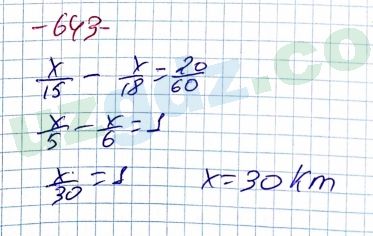 -643-
x/15 - x/18 = 20/60
x/5 - x/6 = 1
x/30 = 1 x = 30 Km
uzgdz.com